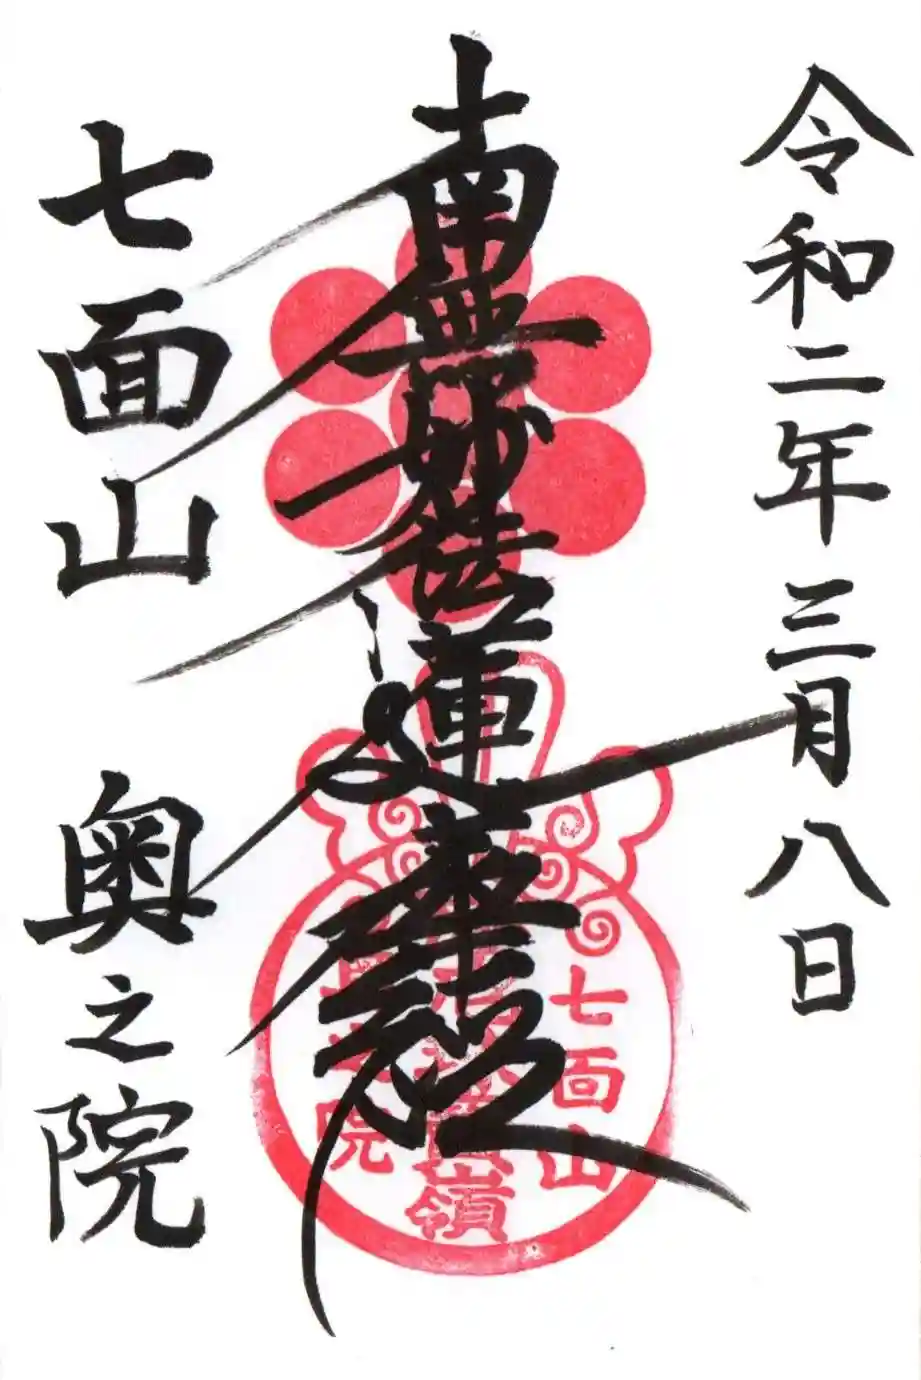 令和二年三月八日
南無妙法蓮華経
七面山 奥之院
七面山
奥之院